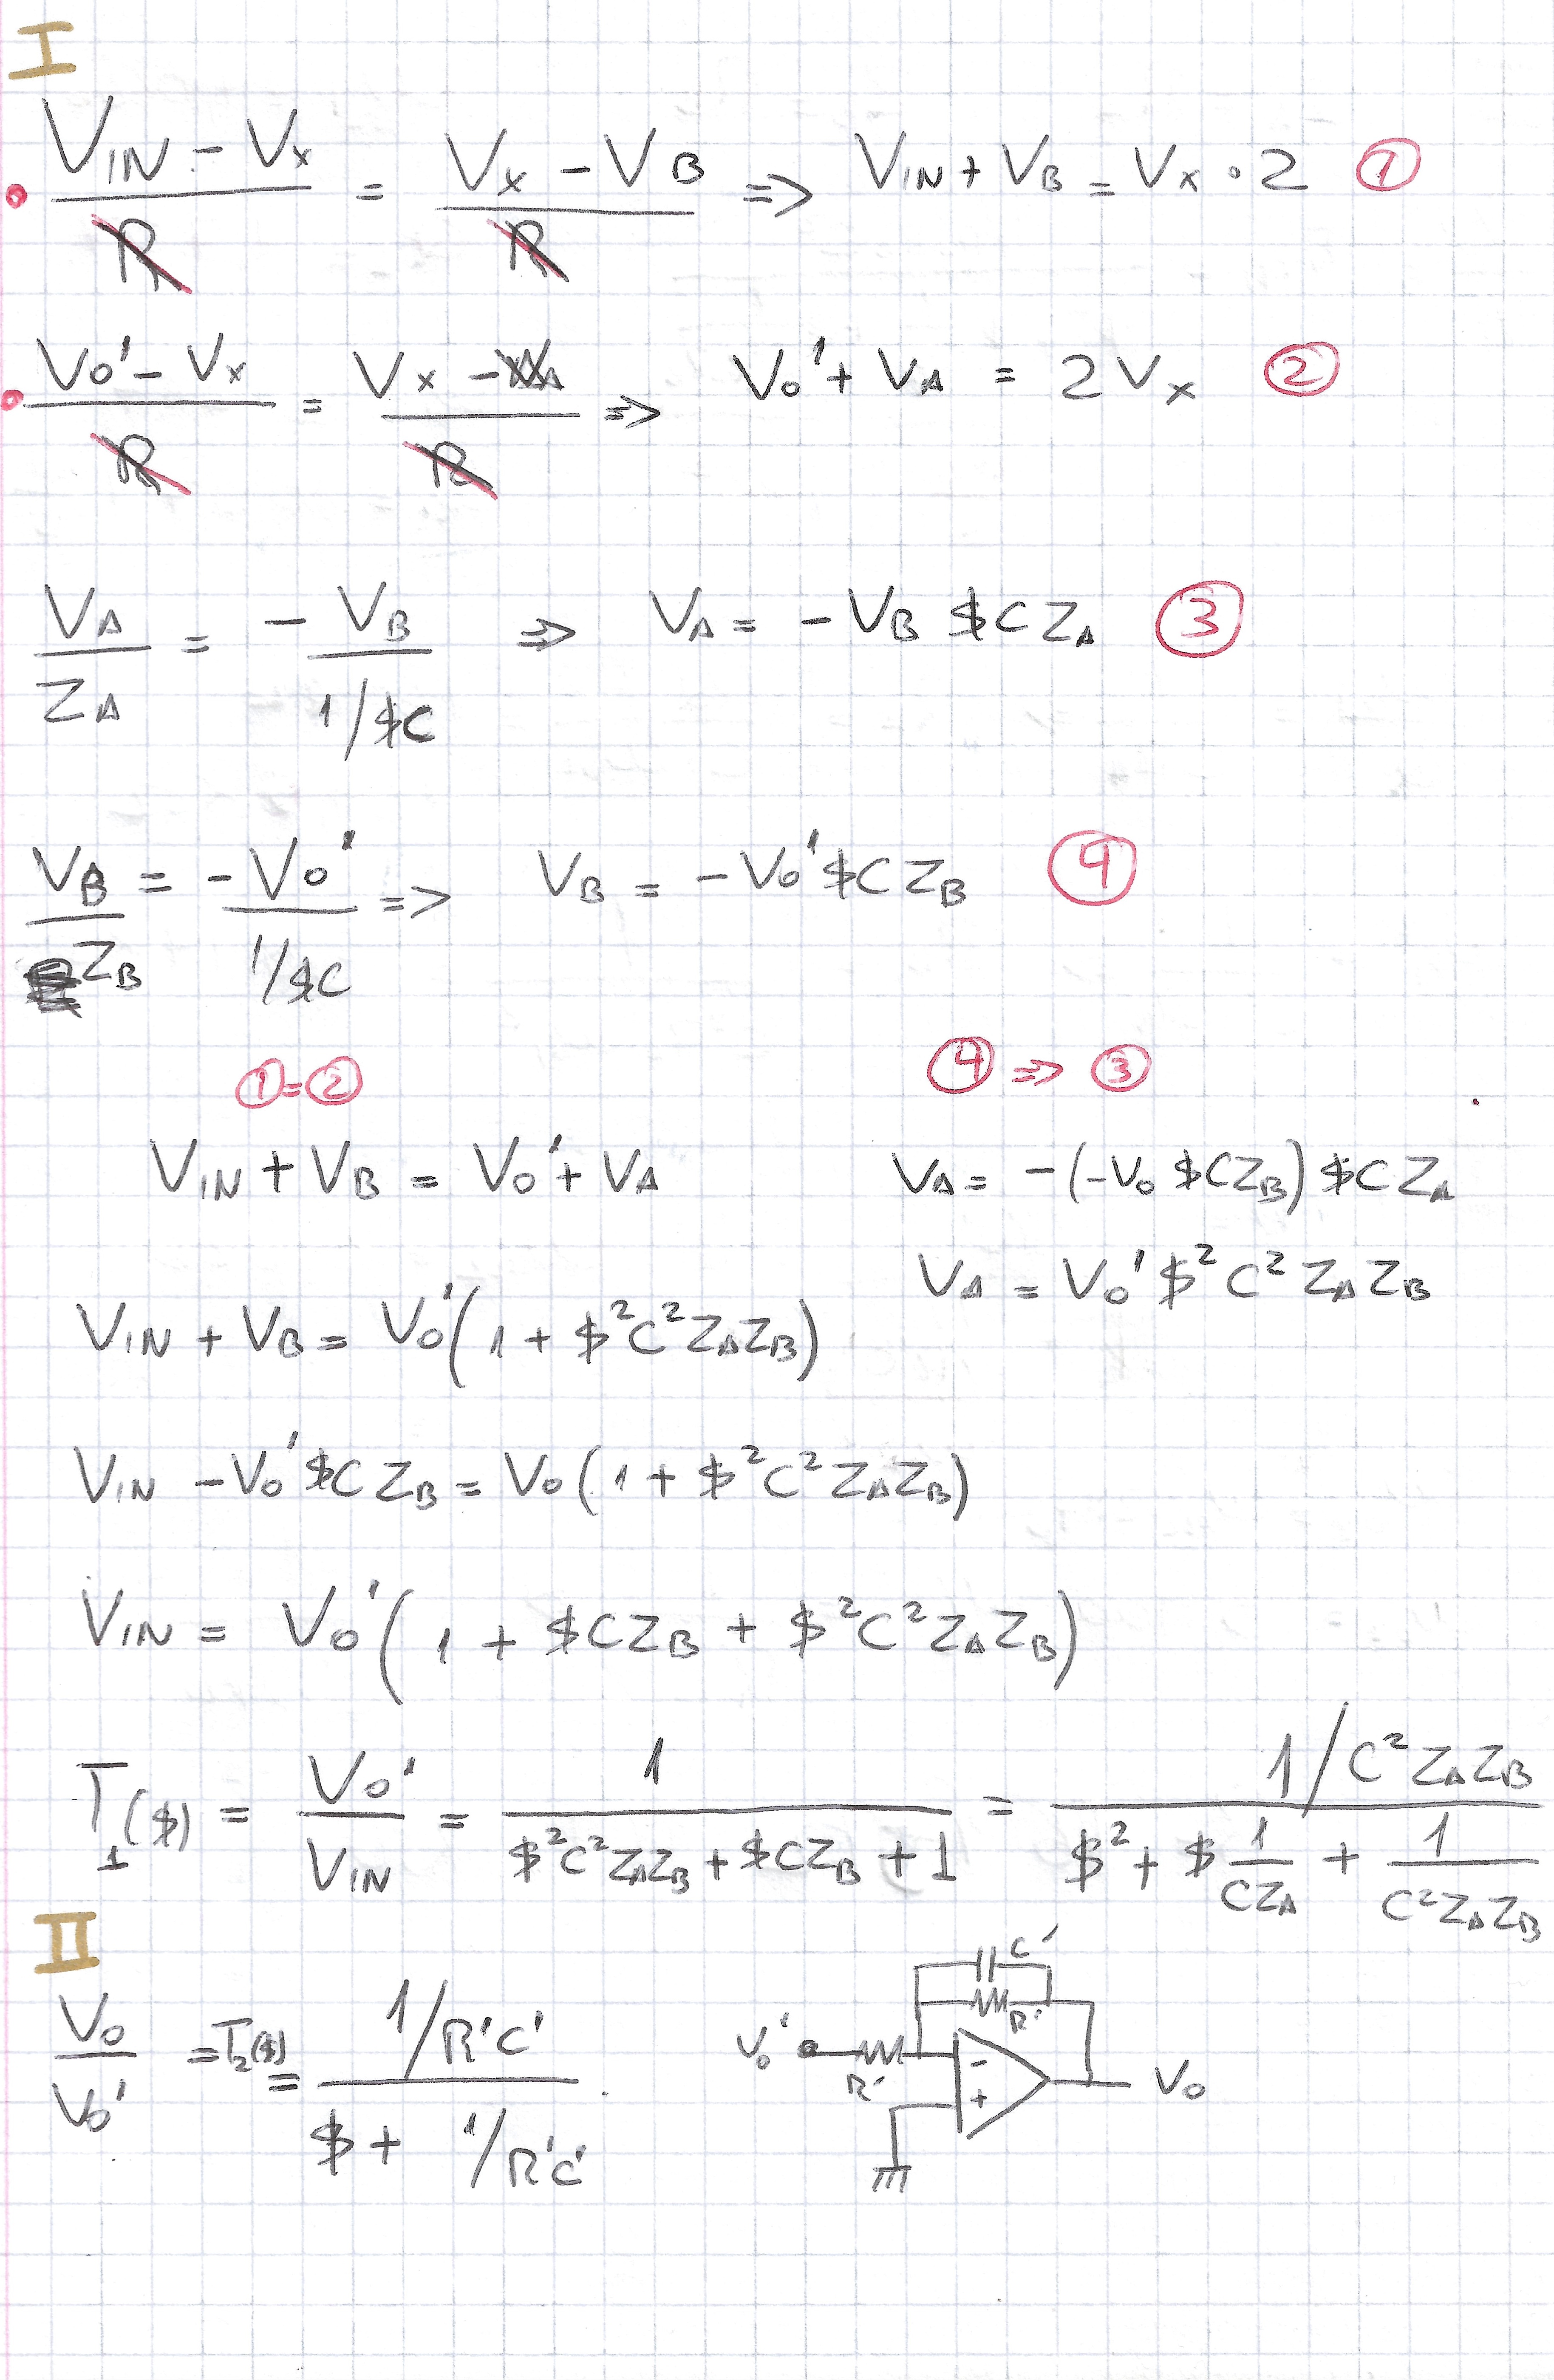 I
(V_IN - V_x)/R = (V_x - V_B)/R => V_IN + V_B = V_x · 2 ①
(V_0' - V_x)/R = (V_x - V_A)/R => V_0' + V_A = 2 V_x ②
V_A/Z_A = - V_B/(1/$C) => V_A = - V_B $C Z_A ③
V_B/Z_B = - V_0'/(1/$C) => V_B = - V_0' $C Z_B ④
① = ② ④ => ③
V_IN + V_B = V_0' + V_A V_A = -(-V_0 $C Z_B) $C Z_A
V_A = V_0' $² C² Z_A Z_B
V_IN + V_B = V_0' (1 + $² C² Z_A Z_B)
V_IN - V_0' $C Z_B = V_0 (1 + $² C² Z_A Z_B)
V_IN = V_0' (1 + $C Z_B + $² C² Z_A Z_B)
T_1($) = V_0'/V_IN = 1/($² C² Z_A Z_B + $C Z_B + 1) = (1/C² Z_A Z_B)/($² + $ 1/(C Z_A) + 1/(C² Z_A Z_B))
II
V_0/V_0' = T_2($) = (1/R'C')/($ + 1/R'C')
C'
R'
V_0' R' - + V_0